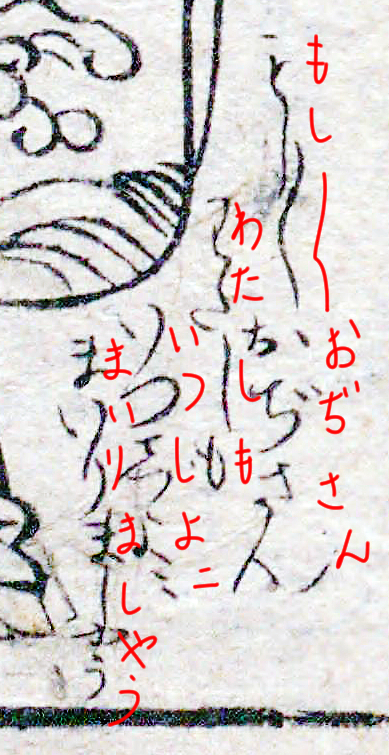 もし〳〵おぢさん
わたしも
いつしよニ
まいりましやう